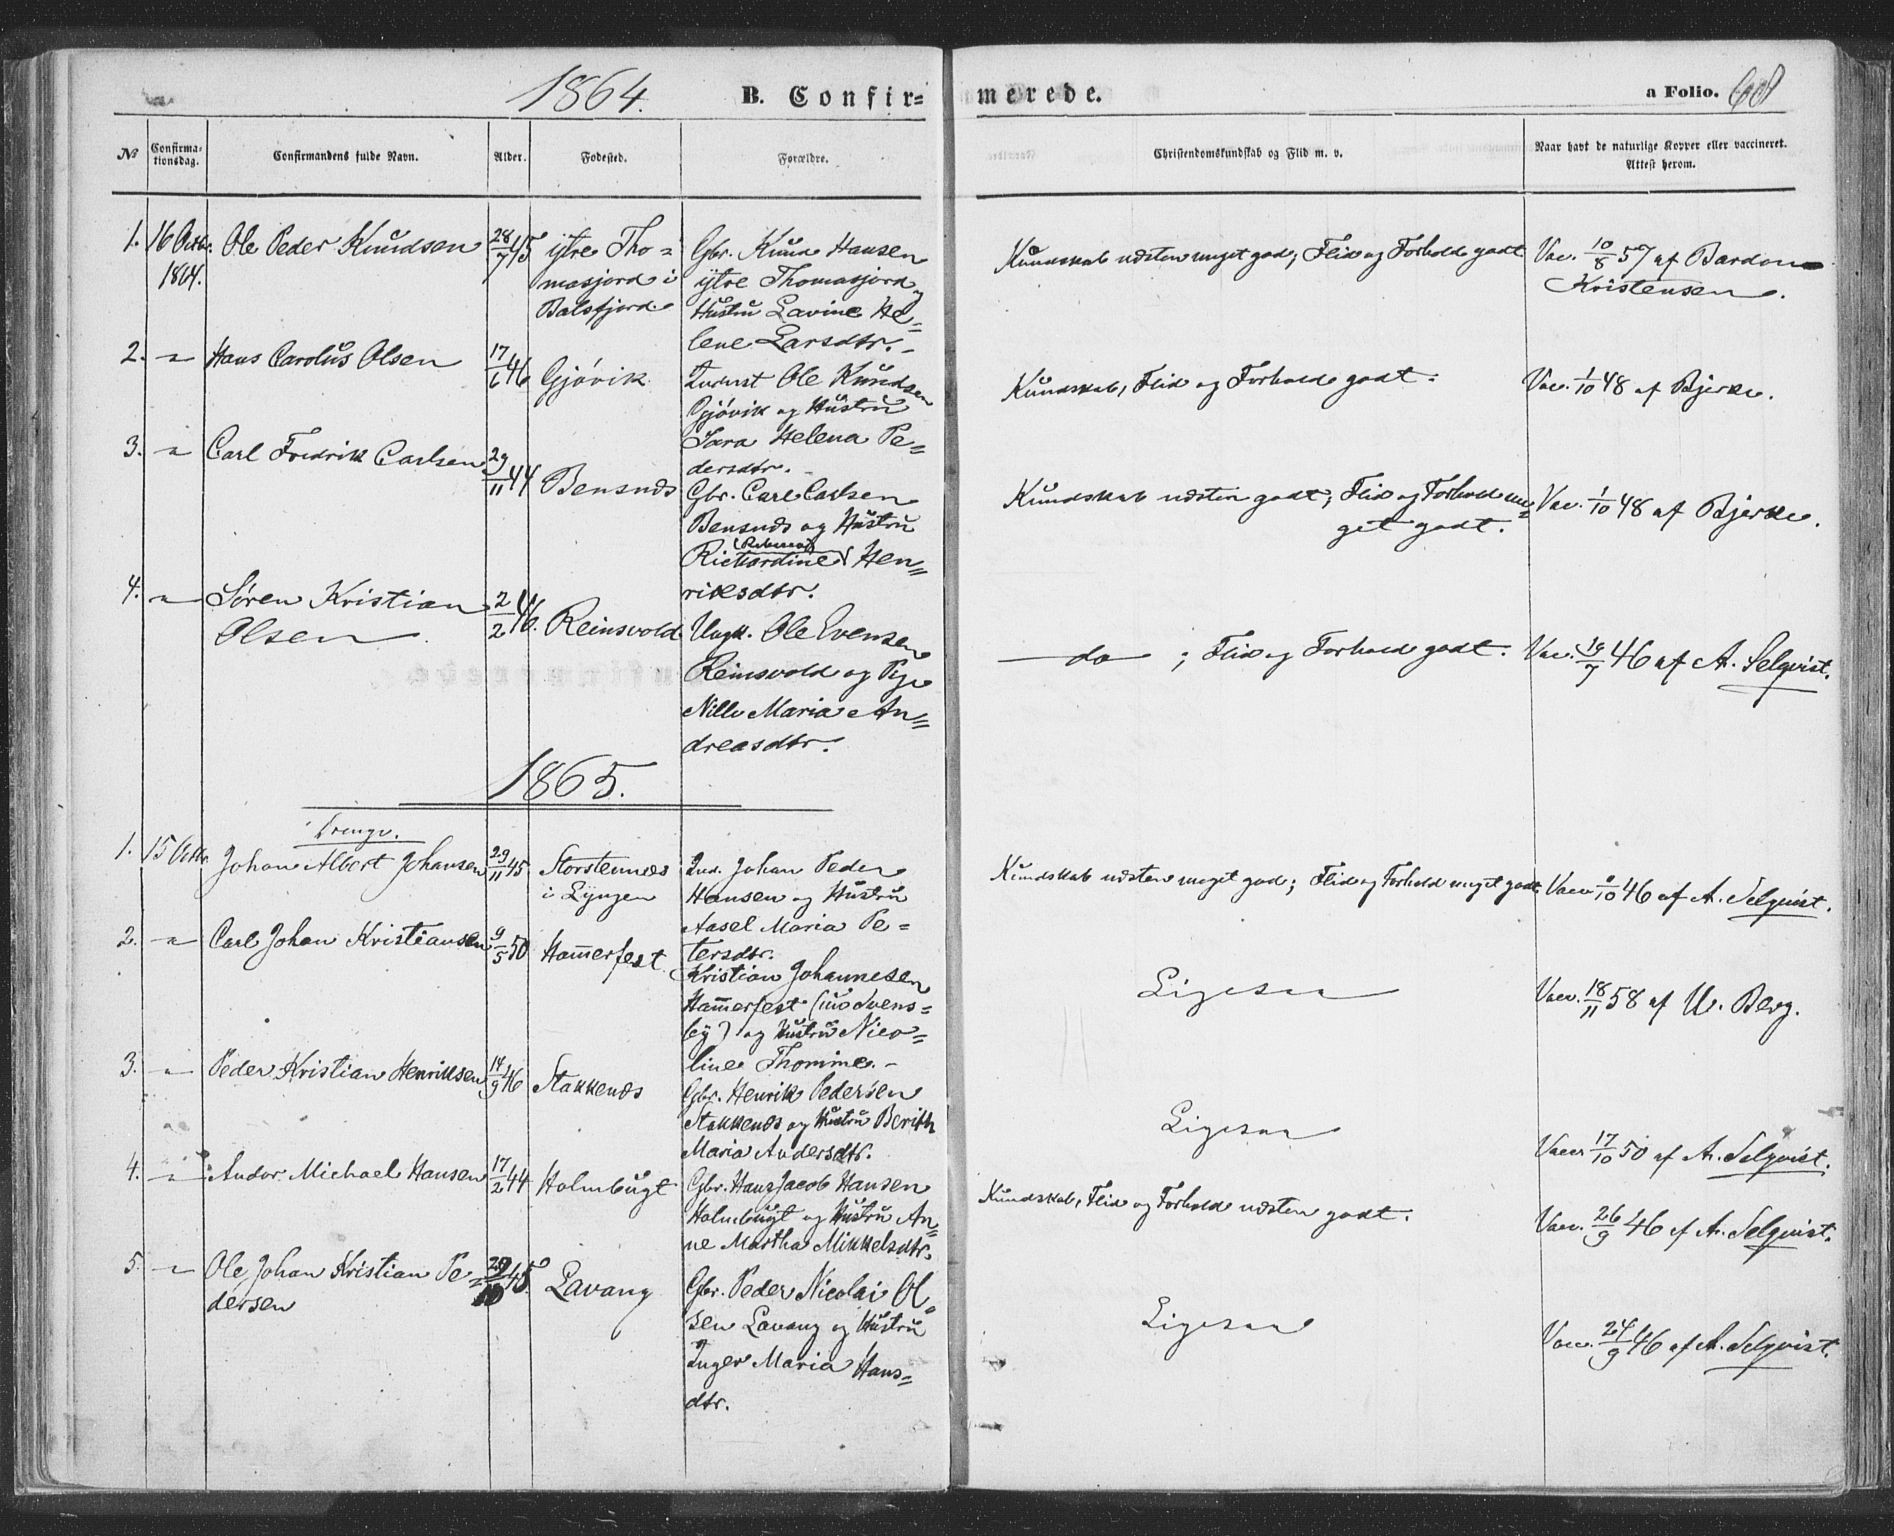 1864.
B. Confir=
merede.
a Folio. 68
№
Confirma-
tionsdag.
Confirmandens fulde Navn.
Alder.
Fødested.
Forældre.
Christendomskundskab og Flid m. v.
Naar havt de naturlige Kopper eller vaccineret.
Attest herom.
1. 16 Octbr. 1864. Ole Peder Knudsen 28/7 45
ytre Tho=
masjord i
Balsfjord.
Gbr. Knud Hansen
ytre Thomasjord og
Hustru Lavine He=
lene Larsdtr. -
Kundskab næsten meget god; Flid og Forhold godt
Vac. 10/8 57 af Bardon
Kristensen.
2. " Hans Carolus Olsen 17/6 46 Gjøvik
Inderst Ole Knudsen
Gjøvik og Hustru
Sara Helena Pe=
dersdtr. -
Kundskab, Flid og Forhold godt.
Vac. 1/10 48 af Bjerke.
3. " Carl Fredrik Carlsen 29/11 44 Bensnæs
Gbr. Carl Carlsen
Bensnæs og Hustru
(Rebecca)
Richardine Hen=
riksdtr.
Kundskab næsten godt; Flid og Forhold me=
get godt.
Vac. 1/10 48 af Bjerke.
4. " Sören Kristian
Olsen
2/2 46. Reinsvold
Ungk. Ole Evensen
Reinsvold og Pige
Nille Maria An=
dreasdtr.
do ; Flid og Forhold godt.
Vac. 19/7 46 af A. Selqvist.
1865.
Drenge.
1. 15 Octbr. Johan Albert Johansen 29/11 45
Storstennes
i Lyngen
Ind. Johan Peder
Hansen og Hustru
Aasel Maria Pe=
tersdtr.
Kundskab næsten meget god; Flid og Forhold meget godt
Vacc. /10 46 af A. Selqvist.
2. " Carl Johan Kristiansen 9/5 50 Ham̄erfest
Kristian Johannesen
Ham̄erfest ( Svens=
by) og Hustru Nico=
line Thomine. -
Ligesaa
Vacc. 18/11 58 af U. Berg.
3. " Peder Kristian Henriksen 14/9 46 Stakkenæs
Gbr. Henrik Pedersen
Stakkenæs og Hustru Berith
Maria Andersdtr.
Ligesaa
Vacc. 17/10 50 af A. Selqvist.
4. " Andor Michael Hansen 17/2 44 Holmbugt
Gbr. Hans Jacob Hansen
Holmbugt og Hustru An=
ne Martha Mikkelsdtr.
Kundskab, Flid og Forhold næsten godt.
Vacc. 26/9 46 af A. Selqvist.
5. " Ole Johan Kristian Pe=
dersen
29/10 45. Lavang
Gbr. Peder Nicolai Ol=
sen Lavang og Hustru
Inger Maria Hans=
dtr.
Ligesaa
Vacc. 24/9 46 af A. Selqvist.